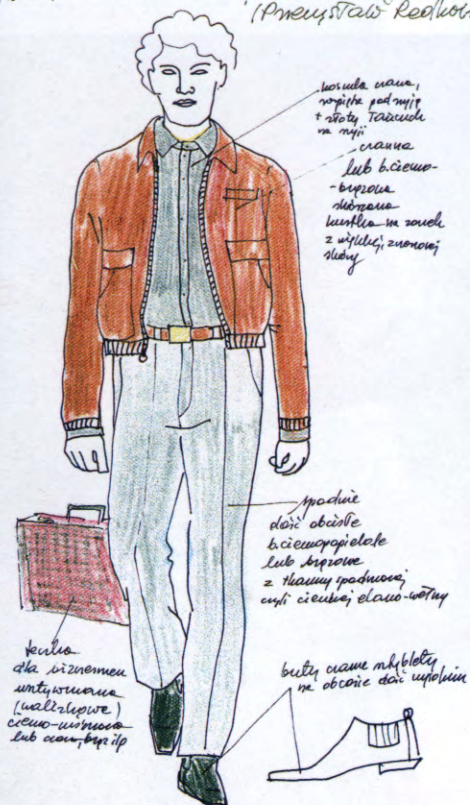 (Przemysław Radkow
koszula czarna,
rozpięta pod szyją
+ złoty łańcuch
na szyji
czarna
lub b.ciemno-
-brązowa
skórzana
kurtka na zamek
z miękkiej,
skóry
spodnie
dość obcisłe
b.ciemnopopielate
lub brązowe
z tkaniny spodniowej
czyli cienkiej elano-wełny
teczka
dla biznesmen
usztywniana
(walizkowa)
ciemno-wiśniowa
lub czarn, brąz itp
buty czarne sztyblety
na obcasie dość wysokim